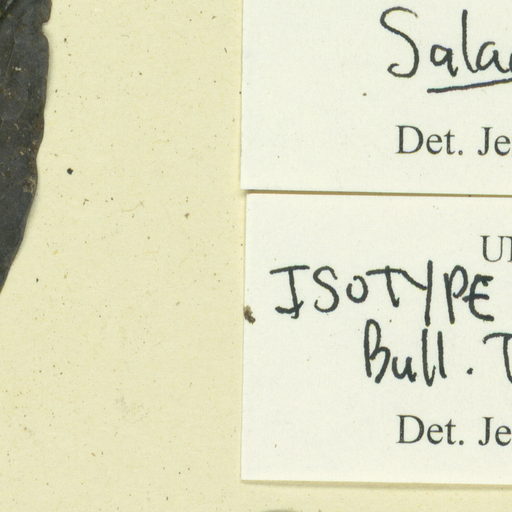 Sala
Det. Je
U
ISOTYPE
Bull. T
Det. Je